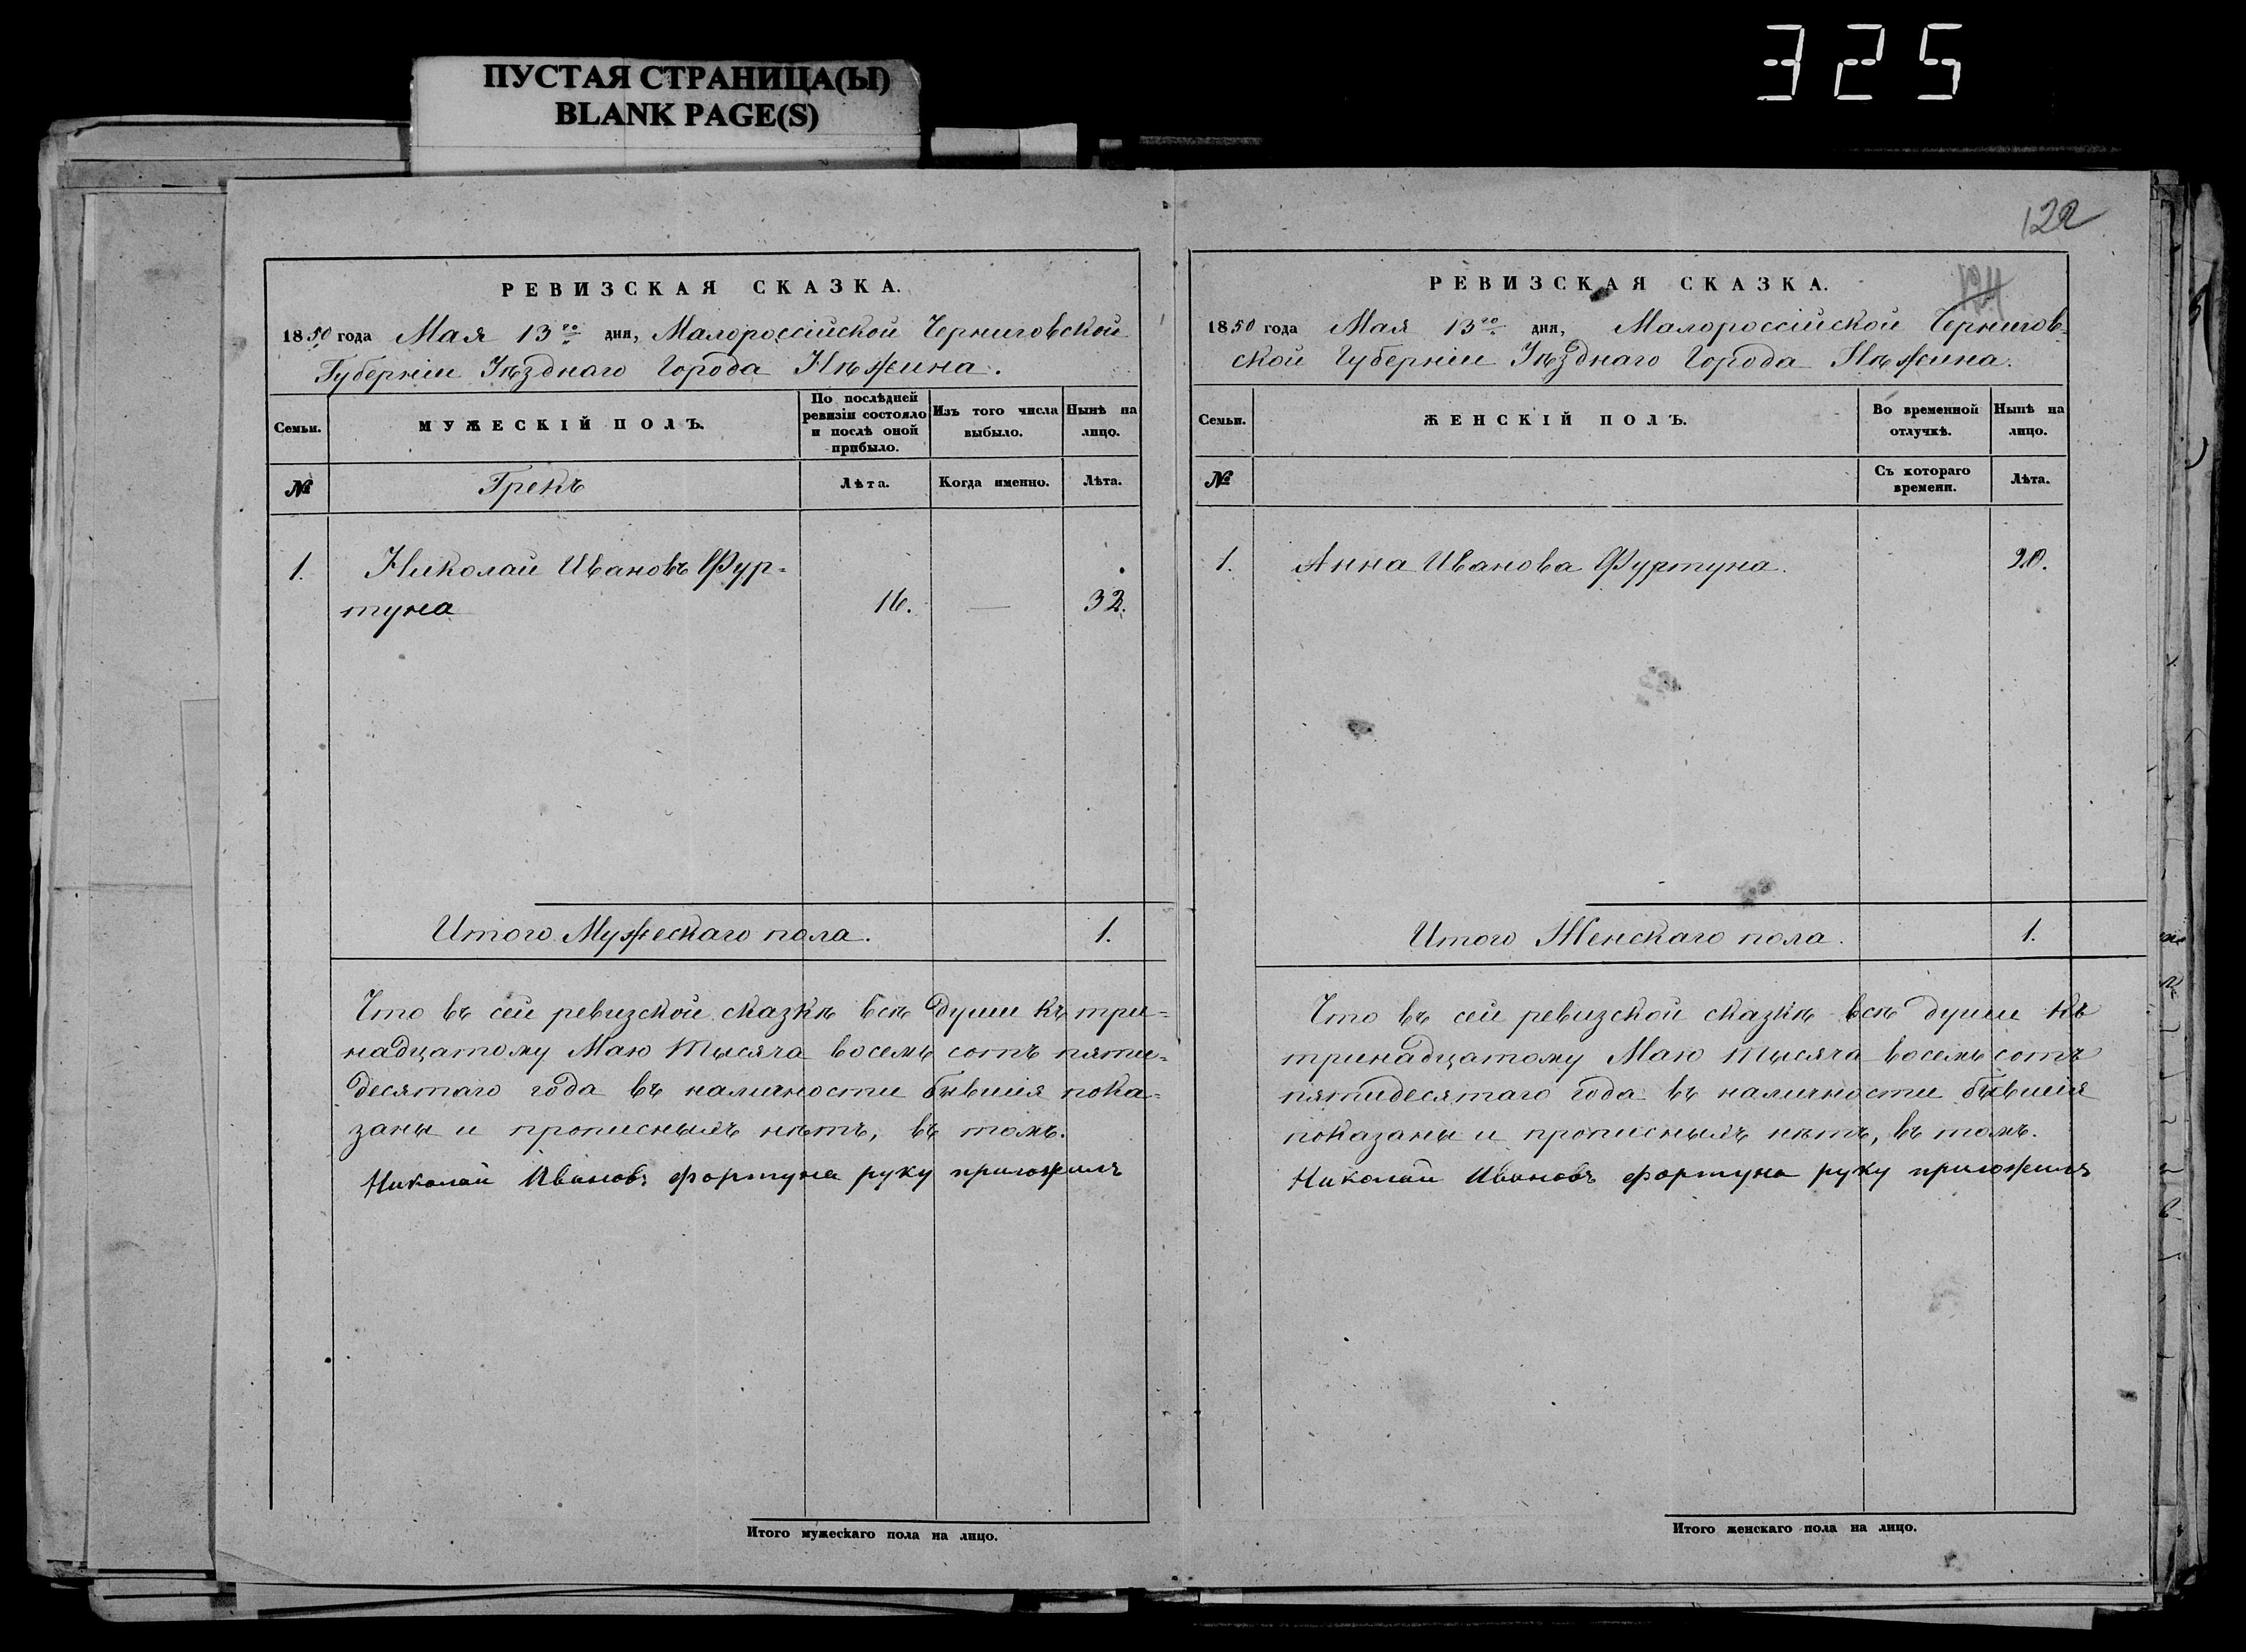 ПУСТАЯ СТРАНИЦА(Ы)
BLANK PAGE(S)
325
122
124
РЕВИЗСКАЯ СКАЗКА.
1850 года Мая 13го дня, Малороссійской Черниговской
Губерніи Уѣзднаго Города Нѣжина.
Семьи.
МУЖЕСКІЙ ПОЛЪ.
По послѣдней
ревизіи состояло
и послѣ оной
прибыло.
Изъ того числа
выбыло.
Нынѣ на
лицо.
№
Грекъ
Лѣта.
Когда именно.
Лѣта.
1. Николай Ивановъ Фур-
туна 16. — 32.
Итого Мужескаго пола. 1.
Что въ сей ревизской сказкѣ всѣ души къ три-
надцатому Маю тысяча восемь сотъ пяти-
десятаго года въ наличности бывшія пока-
заны и прописныхъ нѣтъ, въ томъ.
Николай Ивановъ фортуна руку приложилъ
Итого мужескаго пола на лицо.
РЕВИЗСКАЯ СКАЗКА.
1850 года Мая 13го дня, Малороссійской Чернигов-
ской Губерніи Уѣзднаго Города Нѣжина.
Семьи.
ЖЕНСКІЙ ПОЛЪ.
Во временной
отлучкѣ.
Нынѣ на
лицо.
№
Съ котораго
времени.
Лѣта.
1. Анна Иванова Фуртуна. 20.
Итого Женскаго пола. 1.
Что въ сей ревизской сказкѣ всѣ души къ
тринадцатому Маю тысяча восемь сотъ
пятидесятаго года въ наличности бывшія
показаны и прописныхъ нѣтъ, въ томъ.
Николай Ивановъ фортуна руку приложилъ
Итого женскаго пола на лицо.